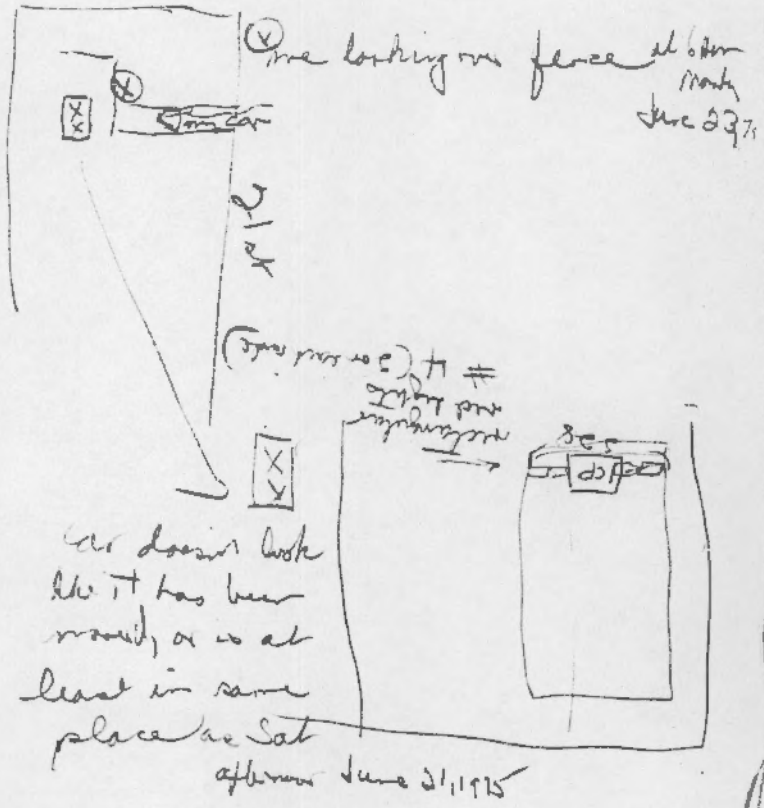 X me looking over fence at 6 Am
Monday
June 23, 75
X
X X
my car
# 4 (2 on each side)
red lights
rectangular
528
X X
Car doesn't look
like it has been
moved, or is at
least in same
place as Sat
afternoon June 21, 1975